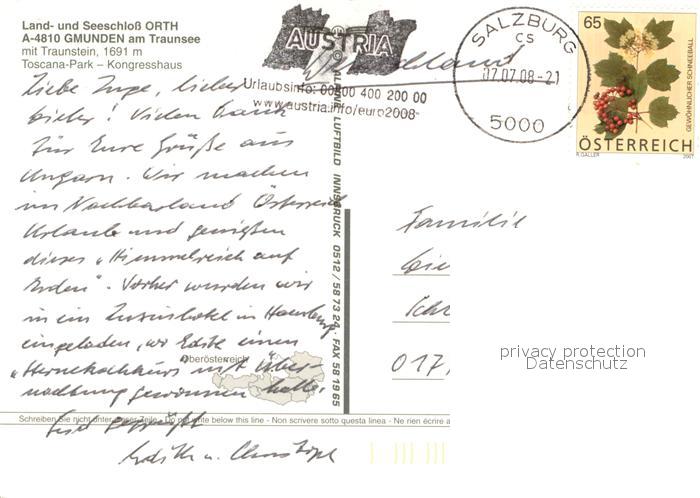 Land- und Seeschloß ORTH
A-4810 GMUNDEN am Traunsee
mit Traunstein, 1691 m
Toscana-Park – Kongresshaus
AUSTRIA
Urlaubsinfo: 00800 400 200 00
www.austria.info/euro2008
SALZBURG
CS
07.07.08-21
5000
65
GEWÖHNLICHER SCHNEEBALL
ÖSTERREICH
A. GALLER 2007
Liebe Inge, lieber
! Vielen Dank
für Eure Grüße aus
Ungarn. Wir machen
im Nachbarland Österreich
Urlaub und genießen
dieses „Himmelreich auf
Erden". Vorher wurden wir
in ein Luxushotel in Hamburg
eingeladen, wo Edith einen
„Sternekochkurs mit Über-
nachtung gewonnen hatte.
Edith u. Christoph
Oberösterreich
ALPINE LUFTBILD INNSBRUCK 0512/58 73 24, FAX 58 19 65
Schreiben Sie nicht unter dieser Zeile - Do not write below this line - Non scrivere sotto questa linea - Ne rien écrire a
Familie
017
privacy protection
Datenschutz